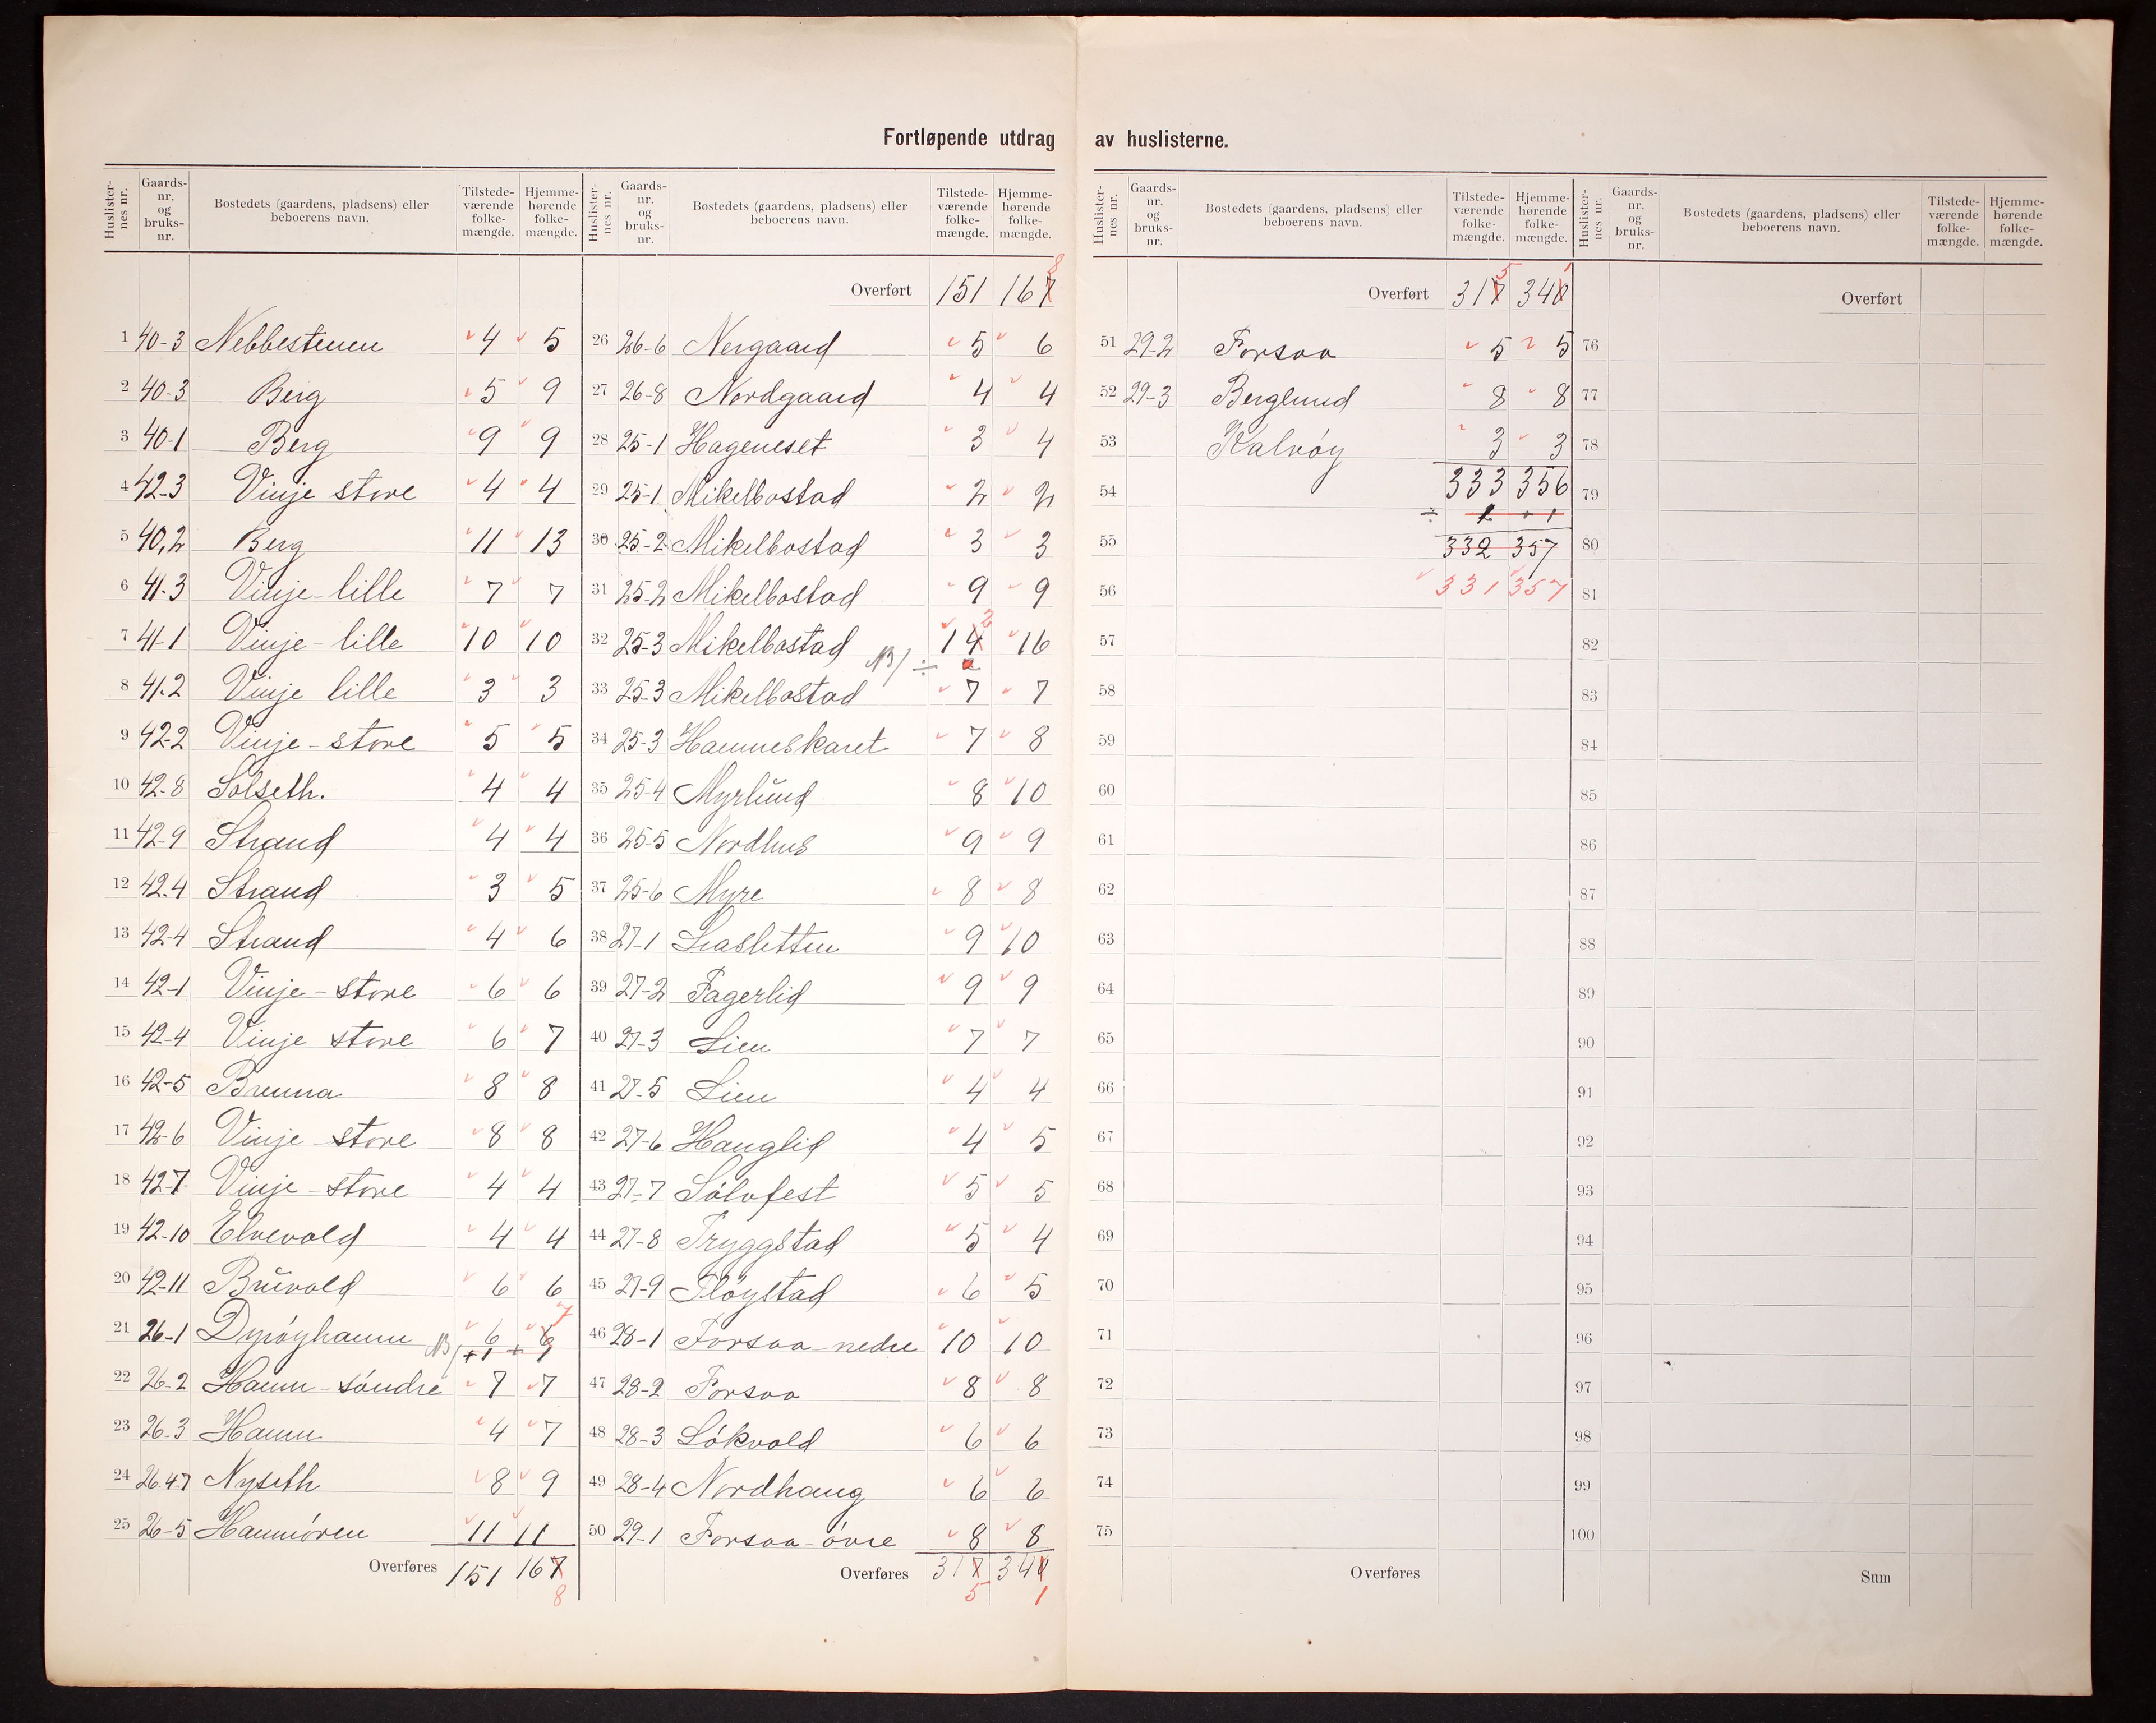 Fortløpende utdrag av huslisterne.
Huslister-nes nr. | Gaards-nr. og bruks-nr. | Bostedets (gaardens, pladsens) eller beboerens navn. | Tilstede-værende folke-mængde. | Hjemme-hørende folke-mængde.
1 40-3 Nebbestenen 4 5
2 40-3 Berg 5 9
3 40-1 Berg 9 9
4 42-3 Vinje store 4 4
5 40,2 Berg 11 13
6 41-3 Vinje-lille 7 7
7 41-1 Vinje-lille 10 10
8 41-2 Vinje lille 3 3
9 42-2 Vinje-store 5 5
10 42-8 Solseth. 4 4
11 42-9 Strand 4 4
12 42-4 Strand 3 5
13 42-4 Strand 4 6
14 42-1 Vinje-store 6 6
15 42-4 Vinje store 6 7
16 42-5 Brenna 8 8
17 42-6 Vinje store 8 8
18 42-7 Vinje-store 4 4
19 42-10 Elvevold 4 4
20 42-11 Brùvold 6 6
21 26-1 Dyrøyhamn 6 6 7
NB/ +1 + 1
22 26-2 Hamn-søndre 7 7
23 26-3 Hamn 4 7
24 26.4-7 Nyseth 8 9
25 26-5 Hamnøren 11 11
Overføres 151 167 8
Huslister-nes nr. | Gaards-nr. og bruks-nr. | Bostedets (gaardens, pladsens) eller beboerens navn. | Tilstede-værende folke-mængde. | Hjemme-hørende folke-mængde.
Overført 151 167 8
26 26-6 Nergaard 5 6
27 26-8 Nordgaard 4 4
28 25-1 Hageneset 3 4
29 25-1 Mikelbostad 2 2
30 25-2 Mikelbostad 3 3
31 25-2 Mikelbostad 9 9
32 25-3 Mikelbostad 14 2 16
NB/ ÷ 2
33 25-3 Mikelbostad 7 7
34 25-3 Hamneskaret 7 8
35 25-4 Myrlùnd 8 10
36 25-5 Nordhus 9 9
37 25-6 Myre 8 8
38 27-1 Liasletten 9 10
39 27-2 Fagerlid 9 9
40 27-3 Lien 7 7
41 27-5 Lien 4 4
42 27-6 Hauglid 4 5
43 27-7 Sølvfest 5 5
44 27-8 Tryggstad 5 4
45 27-9 Fløystad 6 5
46 28-1 Forsaa nedre 10 10
47 28-2 Forsaa 8 8
48 28-3 Løkvold 6 6
49 28-4 Nordhaug 6 6
50 29-1 Forsaa-øvre 8 8
Overføres 317 5 340 1
Huslister-nes nr. | Gaards-nr. og bruks-nr. | Bostedets (gaardens, pladsens) eller beboerens navn. | Tilstede-værende folke-mængde. | Hjemme-hørende folke-mængde.
Overført 317 5 340 1
51 29-2 Forsaa 5 5
52 29-3 Berglund 8 8
53 Kalvøy 3 3
54 333 356
÷ 1 + 1
55 332 357
56 331 357
57
58
59
60
61
62
63
64
65
66
67
68
69
70
71
72
73
74
75
Overføres
Huslister-nes nr. | Gaards-nr. og bruks-nr. | Bostedets (gaardens, pladsens) eller beboerens navn. | Tilstede-værende folke-mængde. | Hjemme-hørende folke-mængde.
Overført
76
77
78
79
80
81
82
83
84
85
86
87
88
89
90
91
92
93
94
95
96
97
98
99
100
Sum